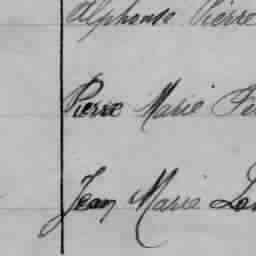 Alphonse Pierre
Pierre Marie
Jean Marie